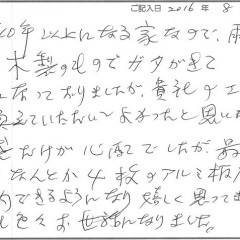 ご記入日 2016 年 8
40年以上になる家なので、雨
木製のものでガタが来て
居っておりましたが、貴社の工
換えていただいてよかったと思いま
だけが心配でしたが、最
なんとか4枚のアルミ板戸
できるようになり嬉しく思って
色々お世話になりました。